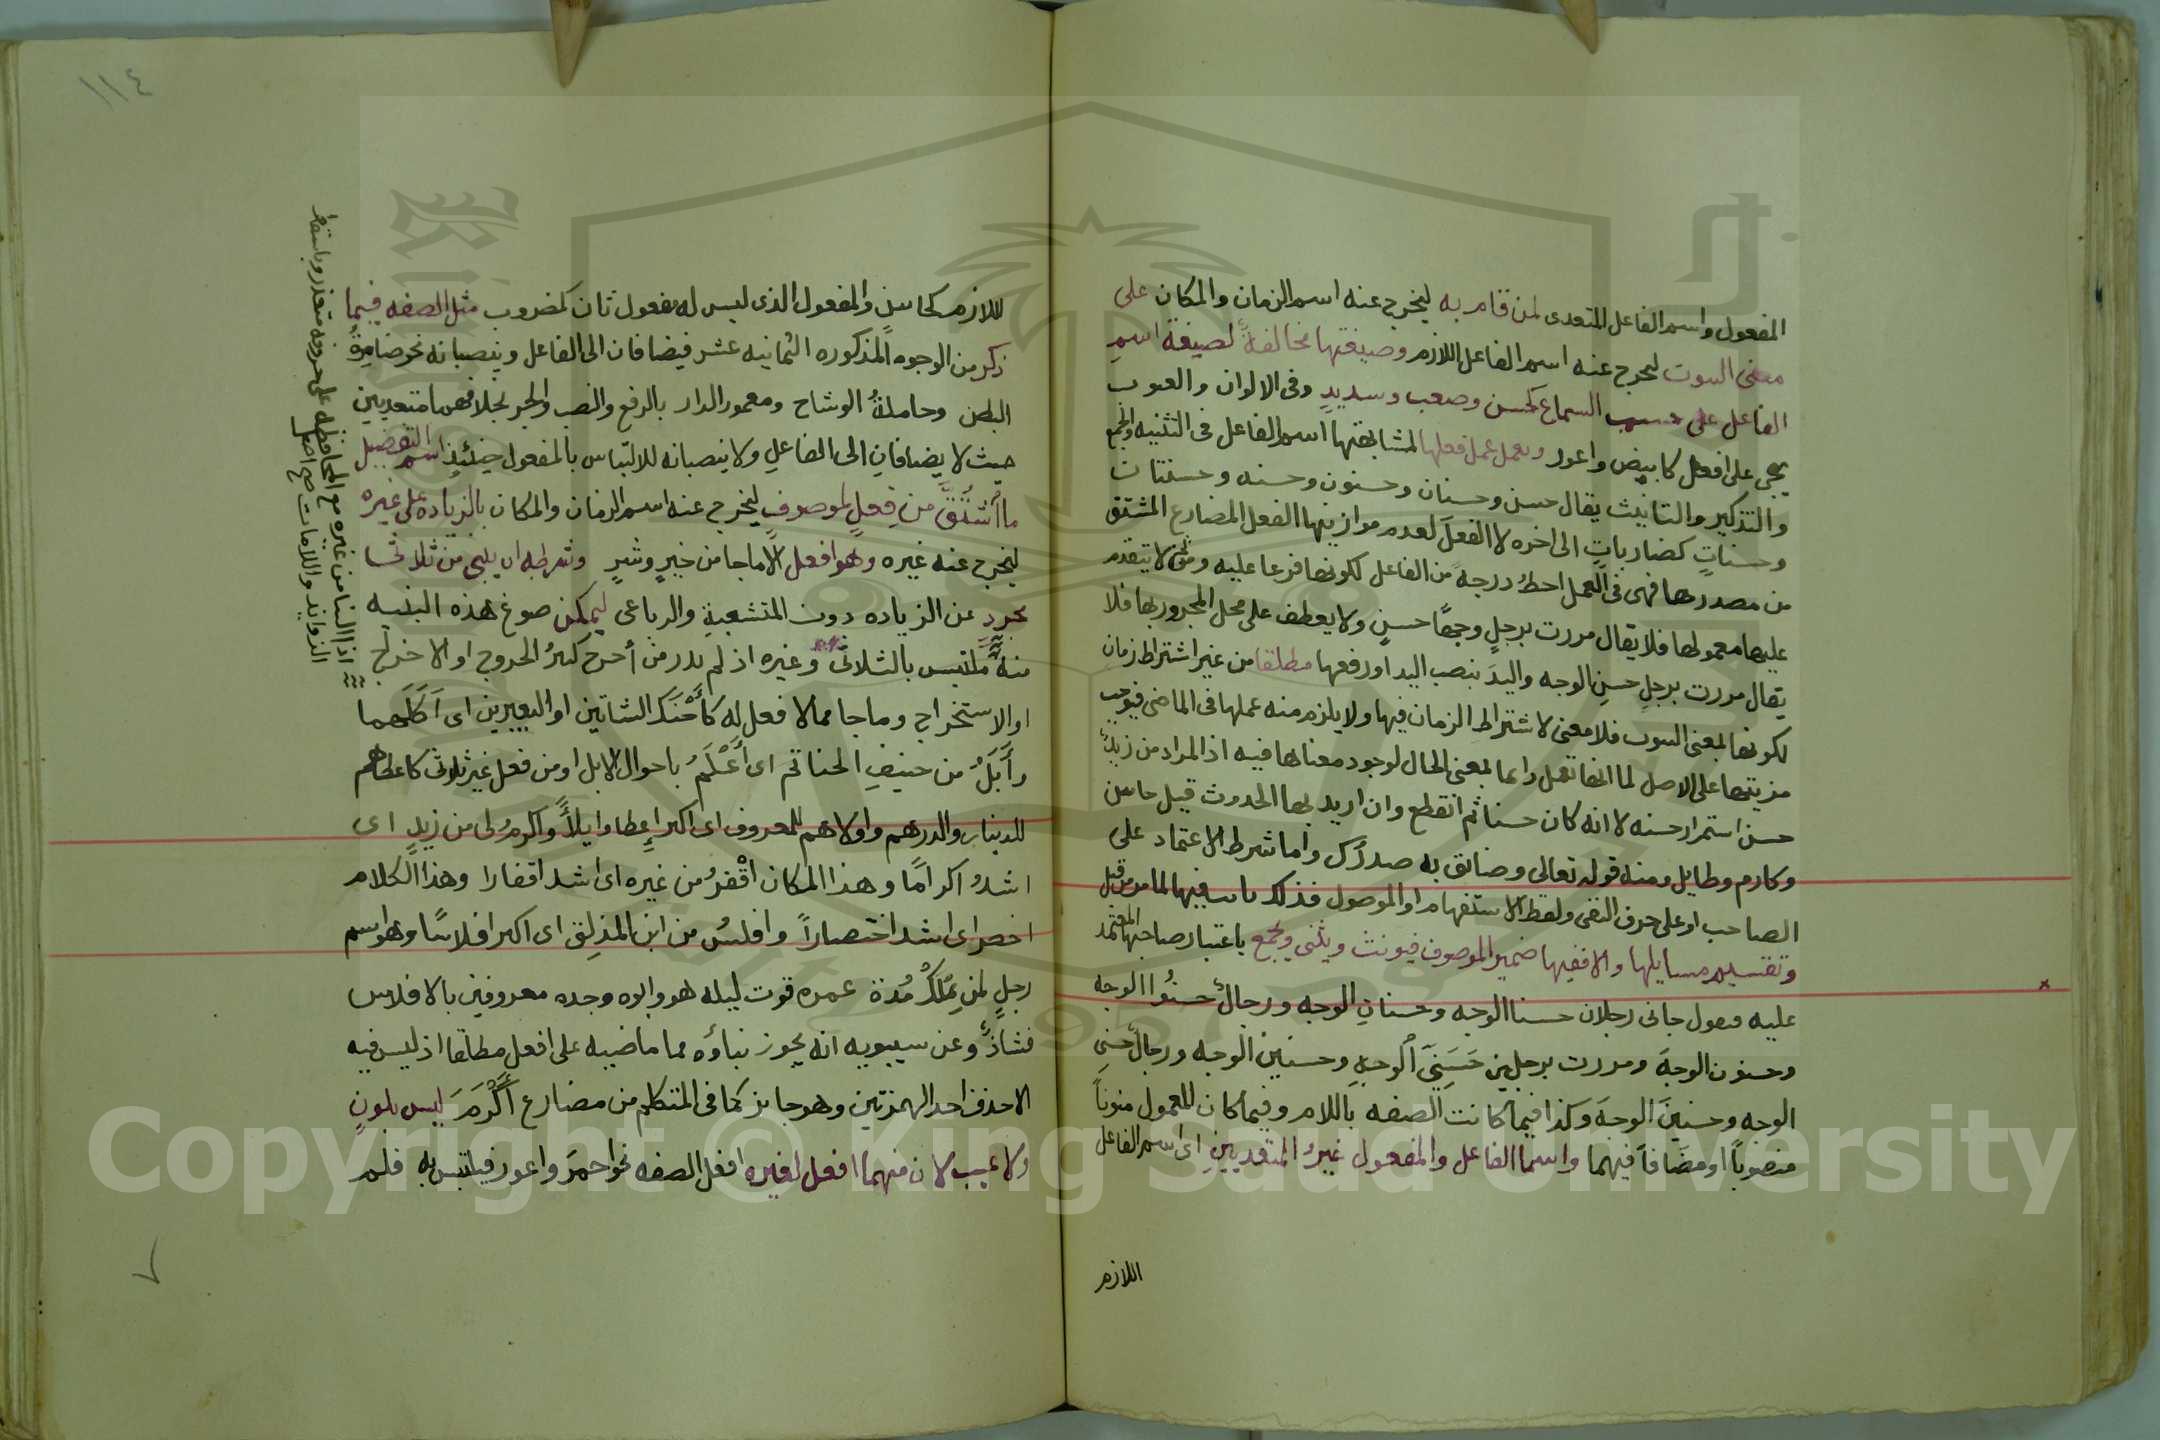 المفعول واسم الفاعل المتعدى لمن قام به ليخرج عنه اسم الزمان والمكان على
معنى الثبوت ليخرج عنه اسم الفاعل اللازم وصيغتها مخالفةٌ لصيغة اسمِ
الفاعل على حسب السماع كحسن وصعب وسديدٍ وفى الالوان والعيوب
يجى على افعل كابيض واعور وتعمل عمل فعلها لمشابهتها اسم الفاعل فى التثنيه والجمع
والتذكير والتانيث يقال حسن وحسنان وحسنون وحسنه وحسنتان
وحسناتٍ كضارباتٍ الى اخره لا الفعلَ لعدم موازينها الفعل المضارع المشتق
من مصدرها فهى فى العمل احطُ درجةً من الفاعل لكونها فرعا عليه ومن ثم لا يتقدم
عليها معمولها فلا يقال مررت برجلٍ وجهًا حسنٍ ولا يعطف على محل المجرور بها فلا
يقال مررت برجلٍ حسنِ الوجه واليدَ بنصب اليد او رفعها مطلقا من غير اشتراط زمان
لكونها بمعنى الثبوت فلا معنى لاشتراطِ الزمان فيها ولا يلزم منه عملها فى الماضى فيوجب
مزيتها على الاصل لما انها تعمل دايما بمعنى الحال لوجود معناها فيه اذ المراد من زيدٌ
حسن استمرار حسنه لا انه كان حسنا ثم انقطع وان اريد بها الحدوث قيل حاسن
وكارم وطايل ومنه قوله تعالى وضائق به صدرك واما شرط الاعتماد على
الصاحب او على حرف النفى ولفظ الاستفهام او الموصول فذلك فيها لما مر من قبل
وتقسيم مسايلها والا ففيها ضمير الموصوف فيونث ويثنى ويجمع باعتبار صاحبها المعتمد
عليه فيقول جانى رجلان حسنا الوجه وحسنانِ الوجه ورجالٌ حسنُوا الوجه
وحسنون الوجهَ ومررت برجلين حَسَنَىِ الوجهِ وحسنين الوجه ورجال حسنى
الوجه وحسنينَ الوجهَ وكذا فيما كانت الصفه باللام وفيما كان المعمول منوناً
منصوباً او مضَافاً فيهما واسما الفاعل والمفعول غيرُ المتعديينِ اى اسم الفاعل
اللازم
١١٤
اللازم كحاسنٍ والمفعول الذى ليس له مفعول ثان كمضروب مثل الصفه فيما
ذكر من الوجوه المذكوره الثمانيه عشر فيضافان الى الفاعل وينصبانه نحو ضامرةُ
البطن وحاملةُ الوشاح ومعمور الدار بالرفع والنصب والجر بخلافهما متعديين
حيث لا يضافانِ الى الفاعلِ ولا ينصبانه للالتباس بالمفعول حينئذٍ اسم التفضيل
ما اُشْتُقَّ من فِعلٍ لموصوفٍ ليخرج عنه اسم الزمان والمكان بالزياده على غيره
ليخرج عنه غيره وهو افعل الا ما جا من خيرٍ وشرٍ وشرطه ان يبنى من ثلاثى
مجردٍ عن الزياده دون المتشعبةِ والرباعى ليمكن صوغ هذه البنيه
منه ملتبس بالثلاثى وغيره اذ لم يدر من أخرج كثيرُ الخروج او الاخراج
او الاستخراج وما جا مما لا فعل له كأَحْنَكَ الشاتين او البعيرين اى اَكَلَهما
وأَبَلُ من حنيفِ الحناتم اى أَعْلَمُ باحوال الابل او من فعل غير ثلاثى كاعطاهم
للدينار والدرهم واولاهم للمعروف اى اكبر إعطا وايلاً واكرمُ لى من زيدٍ اى
اشدُ اكرامًا وهذا المكان اقْفَرُ من غيره اى اشد اقفارا وهذا الكلام
اخصر اى اشد اختصاراً وافلسُ من ابن المذلقِ اى اكبر افلاسًا وهو اسم
رجلٍ لم يَمْلِكْ مُدة عمره قوت ليله هو وابوه وجده معروفين بالافلاس
فشاذٌ وعن سيبويه انه يجوز بناؤه مما ماضيه على افعل مطلقا اذ ليس فيه
الا حذف احد الهمزتين وهو جايز كما فى المتكلم من مضارع أكْرَمَ ليس بلونٍ
ولا عيب لان منهما افعل لغيره افعل الصفه نحو احمرَ واعور فيلتبس به فلم
اذا البنا من غيره مع المحافظه على حروفه متعذر وباسقاط
الزوايد واللامات صح اصل